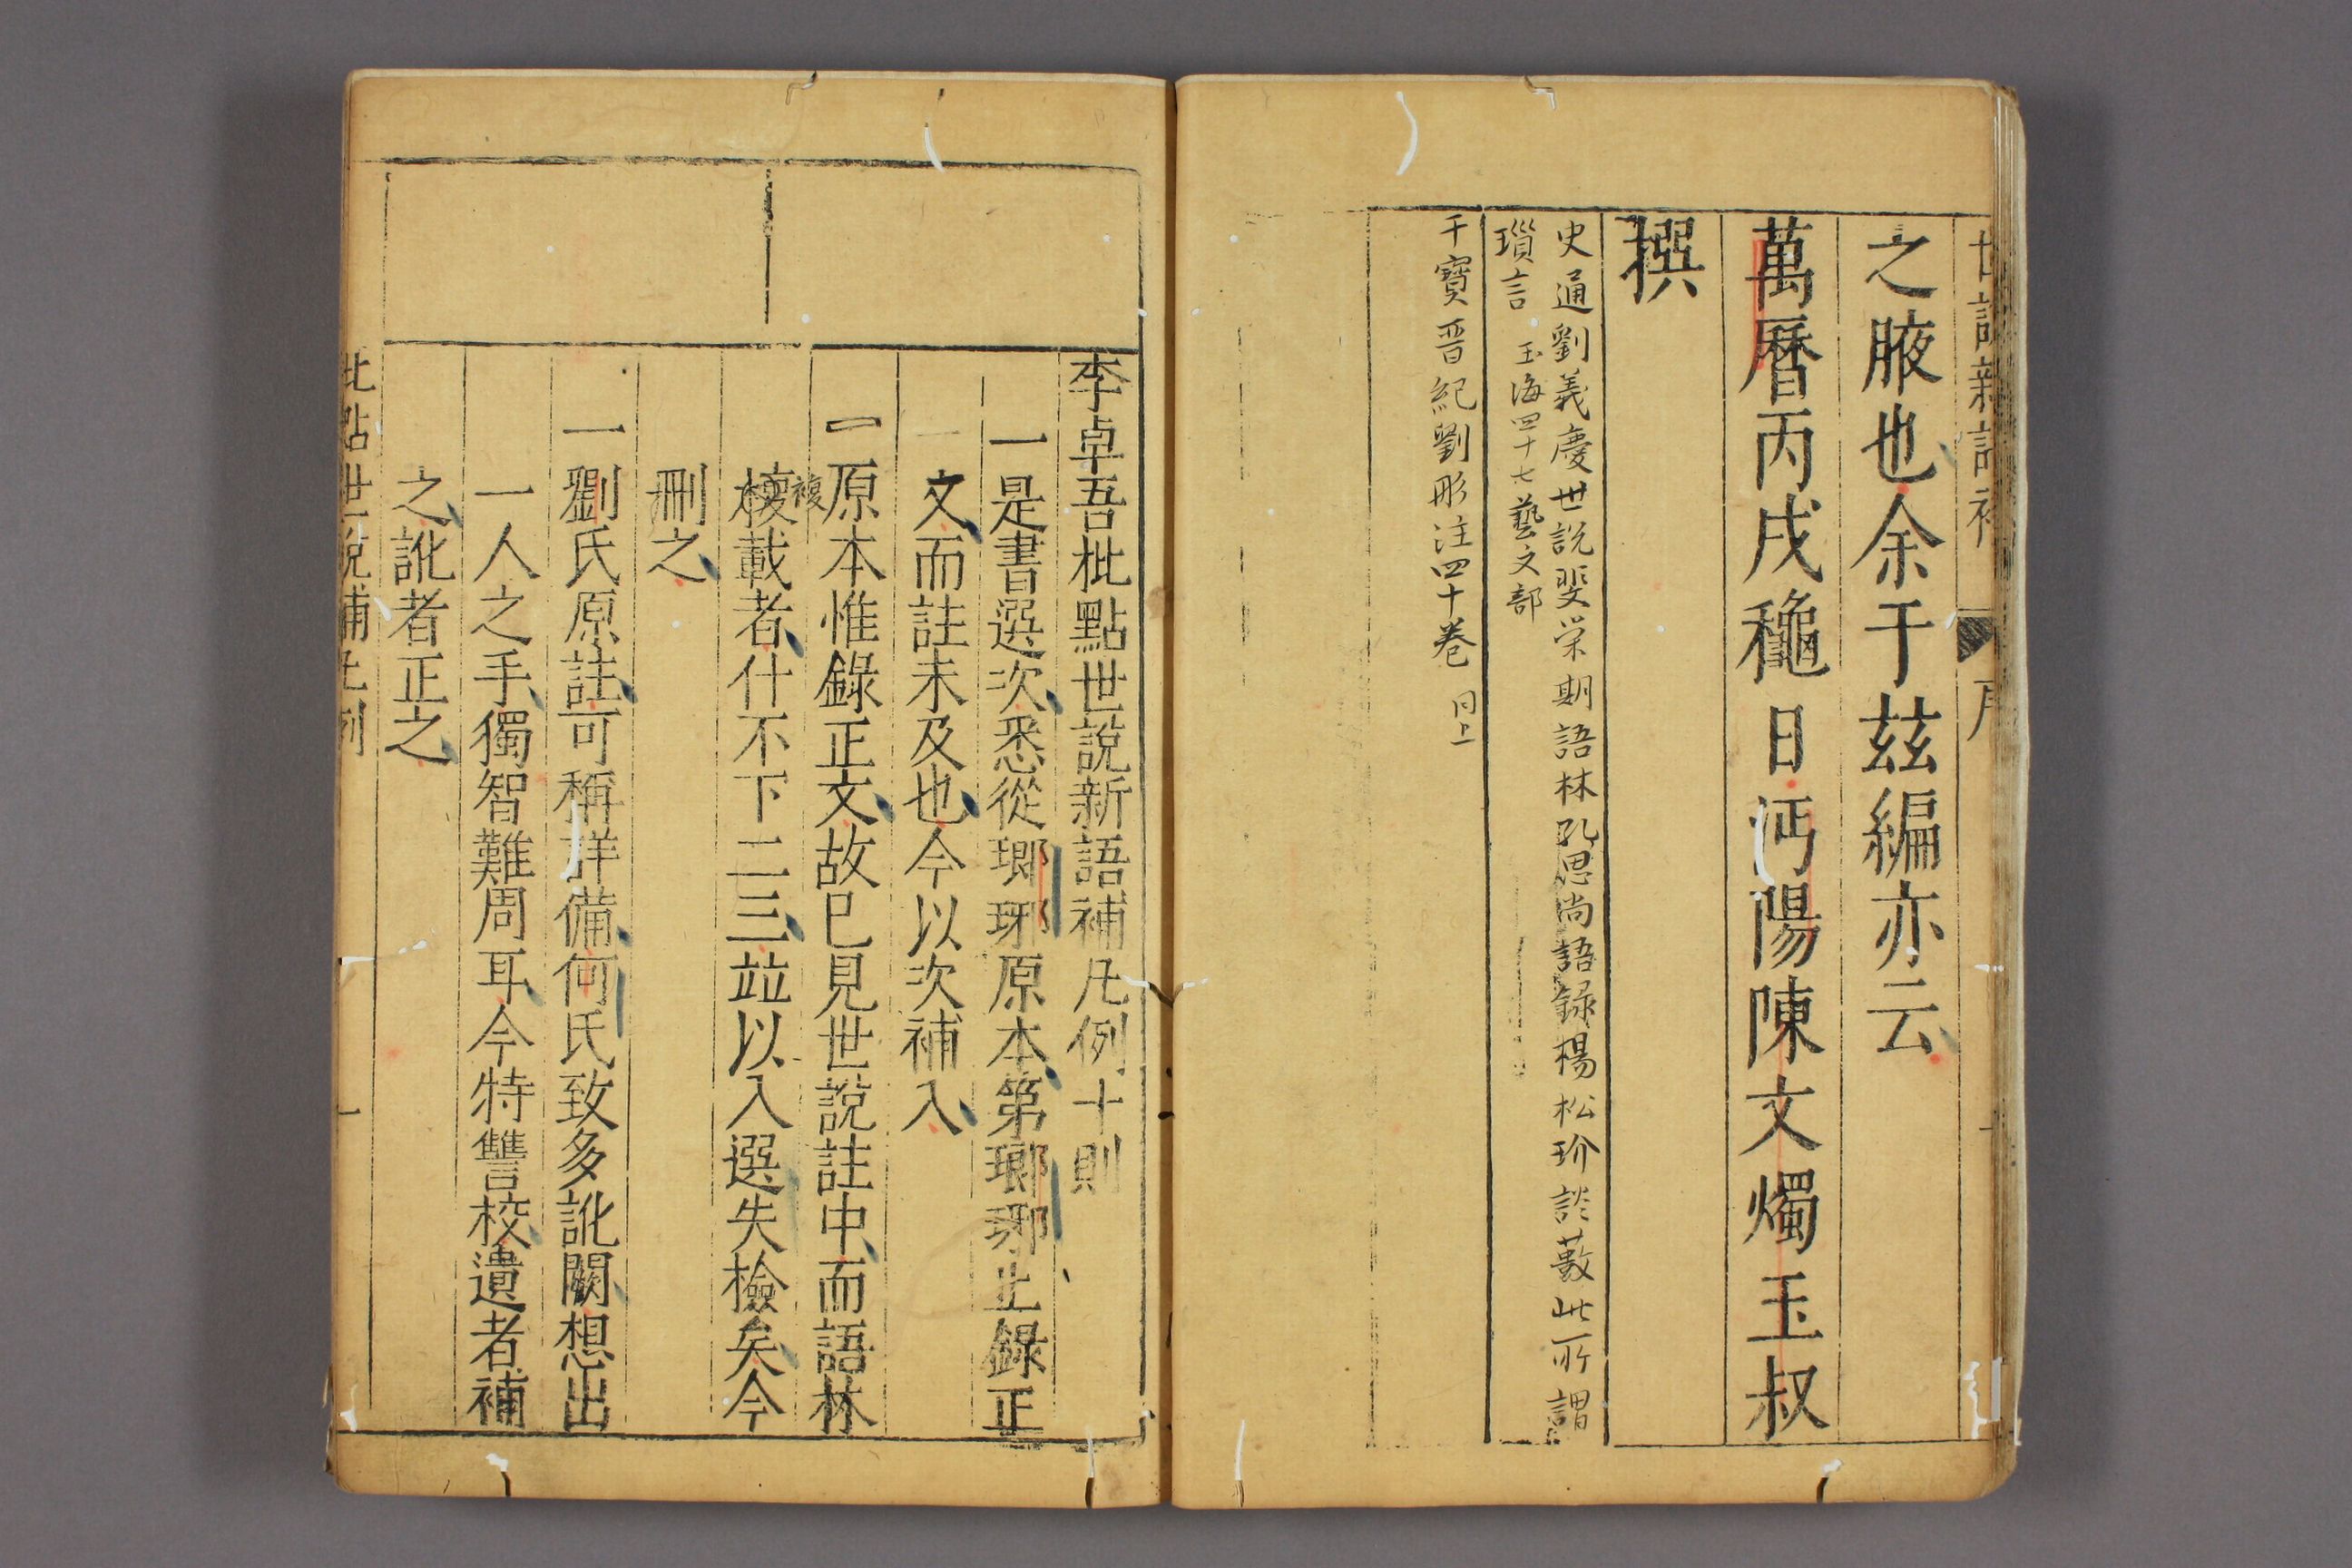 之腋也余于玆編亦云
萬曆丙戌龝日沔陽陳文燭玉叔
撰
史通劉義慶世說裴荣期語林孔思尚語録楊松玠談藪此所謂
瑣言 玉海四十七藝文部
干寶晋紀劉彤注四十卷 同上
李卓吾枇點世說新語補凡例十則
一是書選次悉從瑯琊原本第瑯琊止錄正
文而註未及也今以次補入
一原本惟錄正文故已見世說註中而語林
複
複載者什不下二三並以入選失檢矣今
刪之
一劉氏原註可稱詳備何氏致多訛闕想出
一人之手獨智難周耳今特讐校遺者補
之訛者正之
批點世說補凡例 一